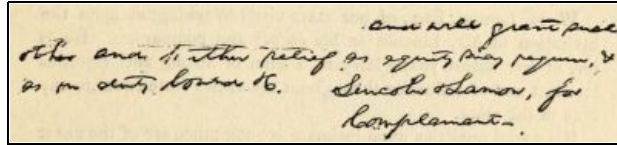 and will grant such
other and further relief as equity may require, &
as in duty bound &c. Lincoln & Lamon, for
Complainant-